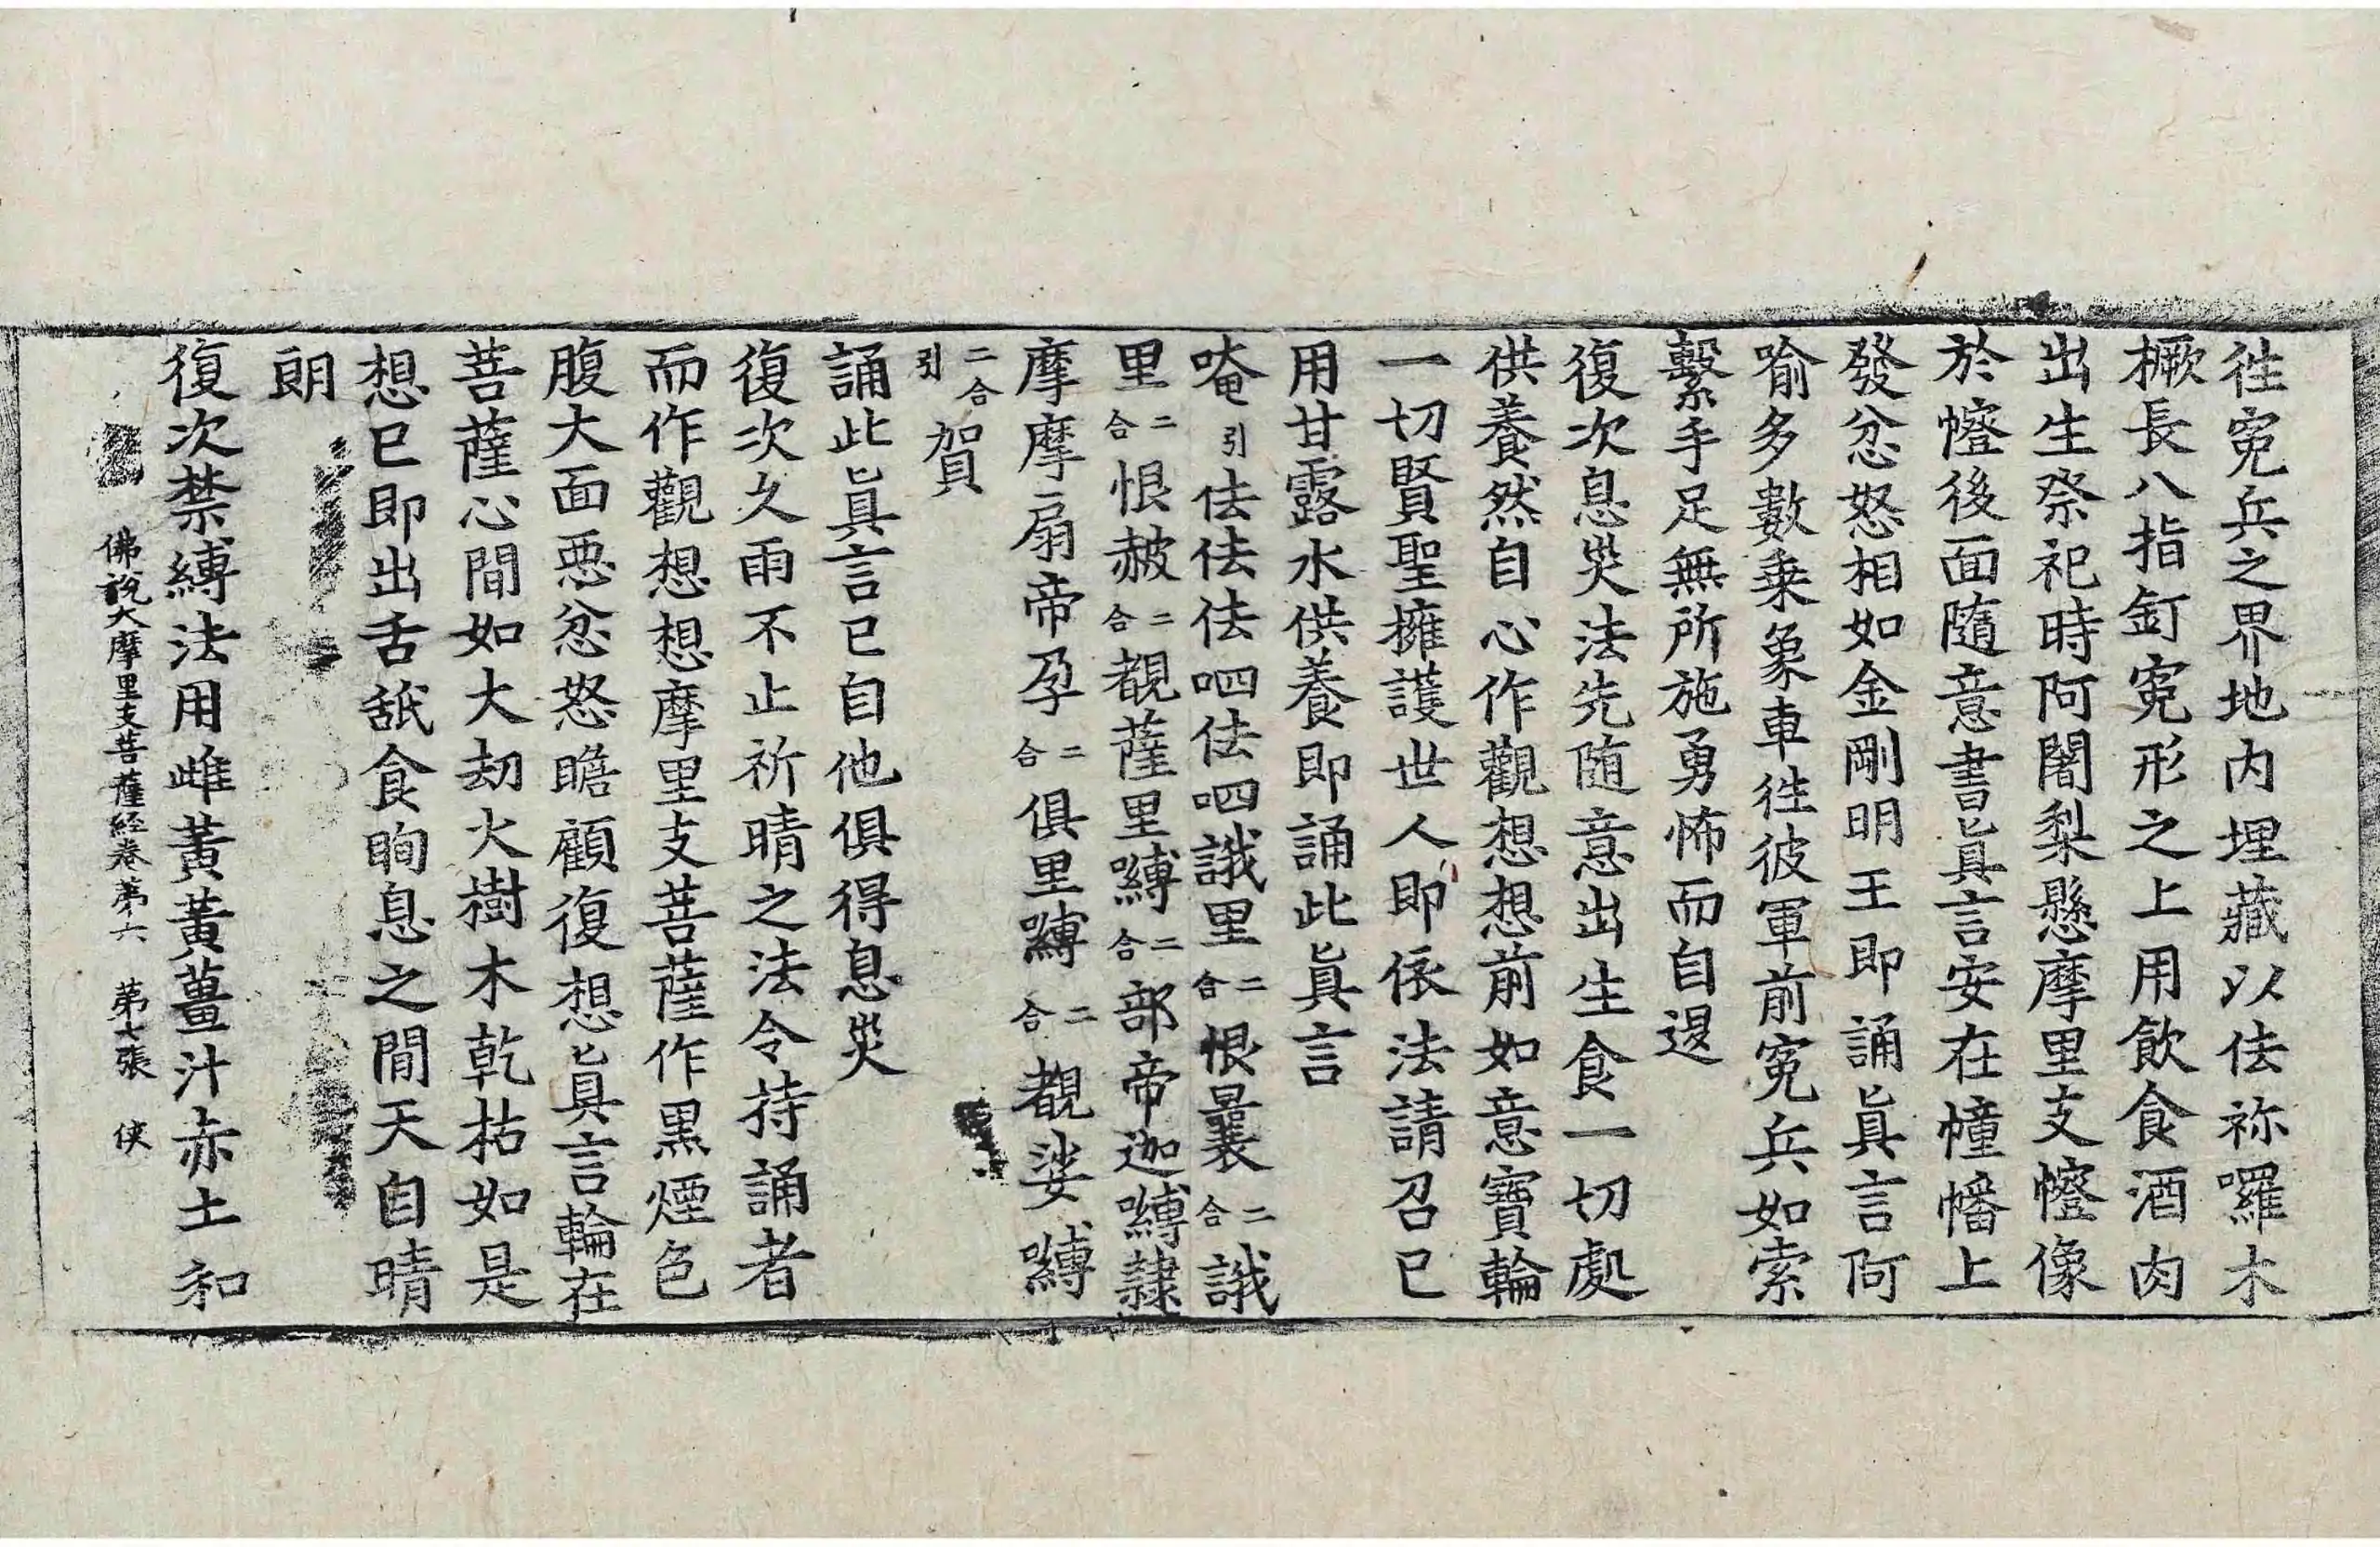 徃寃兵之界地内埋藏以佉祢囉木
橛長八指釘寃形之上用飲食酒肉
出生祭祀時阿闍梨懸摩里支㡧像
於㡧後面隨意書眞言安在幢幡上
發忿怒相如金剛明王即誦眞言阿
喻多數乗象車徃彼軍前寃兵如索
繫手足無所施勇怖而自退
復次息災法先随意出生食一切處
供養然自心作觀想想前如意寶輪
一切賢聖擁護世人即依法請召已
用甘露水供養即誦此眞言
唵引佉佉佉呬佉呬誐里二合恨曩二合誐
里二合恨赧二合覩薩里嚩二合部帝迦嚩隷
摩摩扇帝孕二合俱里嚩二合覩娑嚩
二合引賀
誦此眞言已自他俱得息災
復次久雨不止祈晴之法令持誦者
而作觀想想摩里支菩薩作黒煙色
腹大面惡忿怒瞻顧復想眞言輪在
菩薩心間如大劫火樹木乾枯如是
想已即出舌舐食眴息之間天自晴
朗
復次禁縛法用雌黃黃薑汁赤土和
佛說大摩里支菩薩経卷第六 第七張 俠